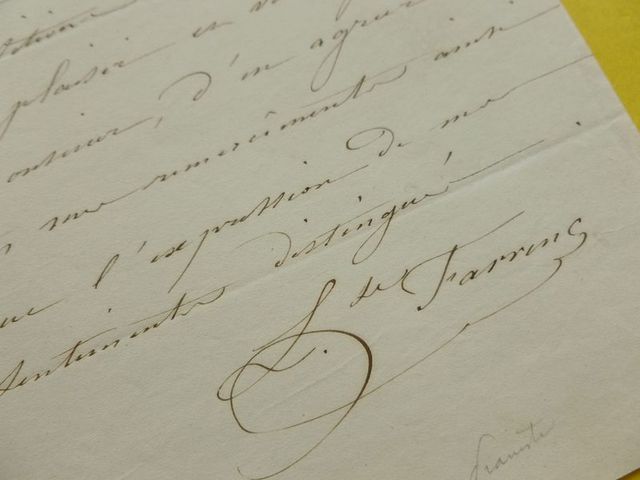 plaisir et v
onsieur, d'en agréer
mes remerciments ainsi
que l'expression de me
sentiments distingué.
L. de Farrenc
pianiste